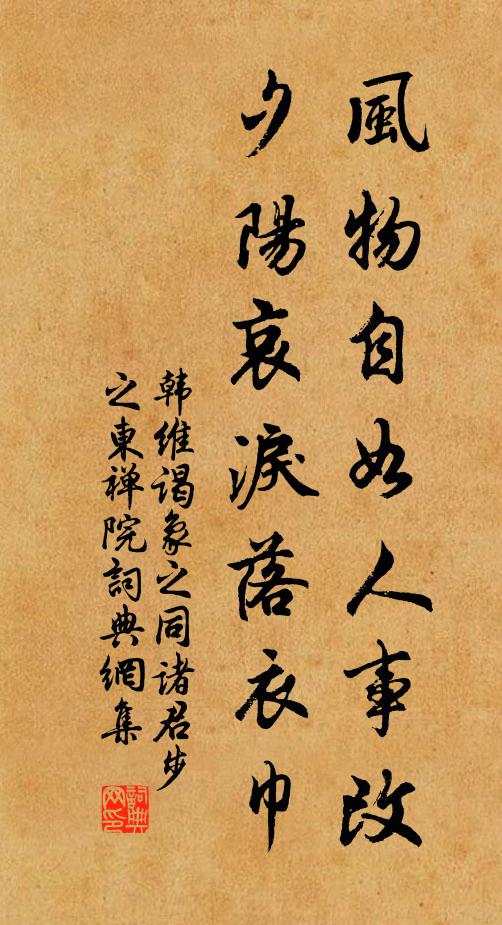 風物自如人事改
夕陽哀淚落衣巾
韩維谒象之同诸君步
之東禅院詞典網集
詞典网印